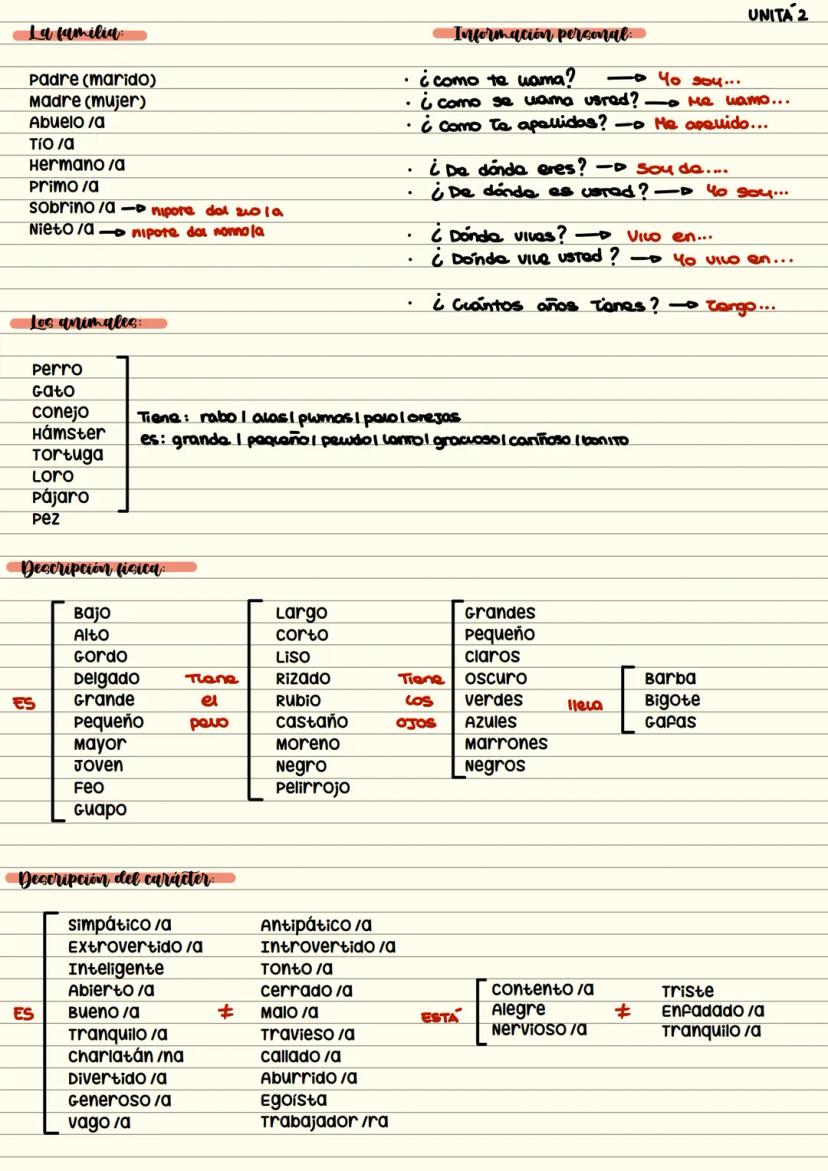 UNITÁ 2
La familia:
Padre (marido)
Madre (mujer)
Abuelo /a
Tío /a
Hermano /a
Primo /a
Sobrino /a → nipote dal zio / a
Nieto /a → nipote dal nonno/a
Información personal:
· ¿como te llama? → Yo soy...
· ¿como se llama usted? → Me llamo...
· ¿como Te apellidas? → Me apellido...
· ¿De dónde eres? → Soy de....
· ¿De dónde es usted? → Yo soy...
· ¿Dónde vives? → Vivo en...
· ¿Dónde vive usted? → Yo vivo en...
· ¿Cuántos años Tienes? → Tengo...
Los animales:
Perro
Gato
Conejo
Hámster
Tortuga
Loro
Pájaro
Pez
Tiene: rabo / alas / plumas / pelo / orejas
es: grande / pequeño / peludo / lento / gracioso / cariñoso / bonito
Descripción física:
ES
Bajo
Alto
Gordo
Delgado
Grande
Pequeño
Mayor
Joven
Feo
Guapo
Tiene
el
pelo
Largo
Corto
Liso
Rizado
Rubio
Castaño
Moreno
Negro
Pelirrojo
Tiene
los
ojos
Grandes
Pequeño
Claros
Oscuro
Verdes
Azules
Marrones
Negros
lleva
Barba
Bigote
Gafas
Descripción del carácter:
ES
Simpático /a
Extrovertido /a
Inteligente
Abierto /a
Bueno /a
Tranquilo /a
Charlatán /na
Divertido /a
Generoso /a
Vago /a
≠
Antipático /a
Introvertido /a
Tonto /a
Cerrado /a
Malo /a
Travieso /a
Callado /a
Aburrido /a
Egoísta
Trabajador /ra
ESTÁ
Contento /a
Alegre
Nervioso /a
≠
Triste
Enfadado /a
Tranquilo /a